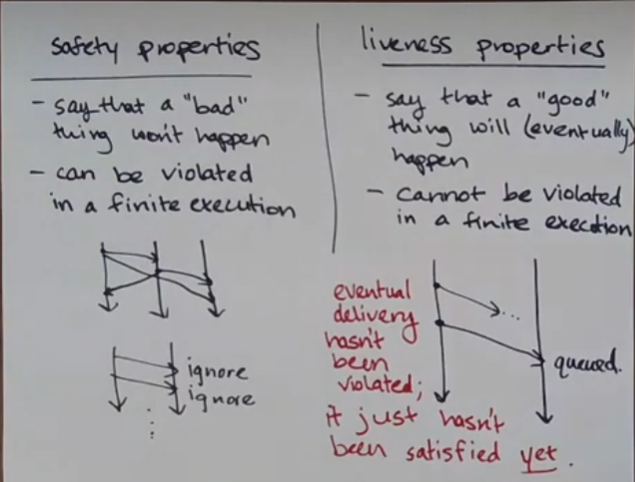 safety properties
- say that a "bad"
thing won't happen
- can be violated
in a finite execution
ignore
ignore
liveness properties
- say that a "good"
thing will (eventually)
happen
- cannot be violated
in a finite execution
eventual
delivery
hasn't
been
violated;
it just hasn't
been satisfied yet.
...
queued.